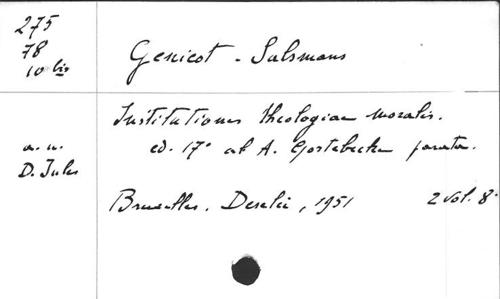 275
78
10 bis
Genicot - Salsmans
Institutiones theologiae moralis.
a. u.
ed. 17° ab A. Gortebecke parata.
D. Jules
Bruxelles. Desclée, 1951
2 vol. 8°